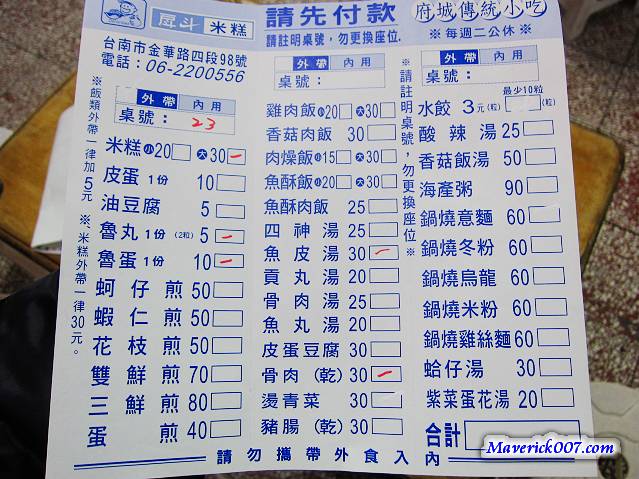 戽斗 米糕
台南市金華路四段98號
電話：06-2200556
外帶 內用
桌號： 23
※飯類外帶一律加5元 ※米糕外帶一律30元。
米糕 小20 大30
皮蛋 1份 10
油豆腐 5
魯丸 1份 (2粒) 5
魯蛋 1份 10
蚵仔煎 50
蝦仁煎 50
花枝煎 50
雙鮮煎 70
三鮮煎 80
蛋煎 40
請先付款
請註明桌號，勿更換座位.
外帶 內用
桌號：
※請註明桌號，勿更換座位※
雞肉飯 小20 大30
香菇肉飯 30
肉燥飯 小15 大30
魚酥飯 小20 大30
魚酥肉飯 25
四神湯 25
魚皮湯 30
貢丸湯 20
骨肉湯 25
魚丸湯 20
皮蛋豆腐 30
骨肉 (乾) 30
燙青菜 30
豬腸 (乾) 30
府城傳統小吃
※每週二公休※
外帶 內用
桌號：
最少10粒
水餃 3元(粒) (粒)
酸辣湯 25
香菇飯湯 50
海產粥 90
鍋燒意麵 60
鍋燒冬粉 60
鍋燒烏龍 60
鍋燒米粉 60
鍋燒雞絲麵 60
蛤仔湯 30
紫菜蛋花湯 20
合計
請勿攜帶外食入內
Maverick007.com